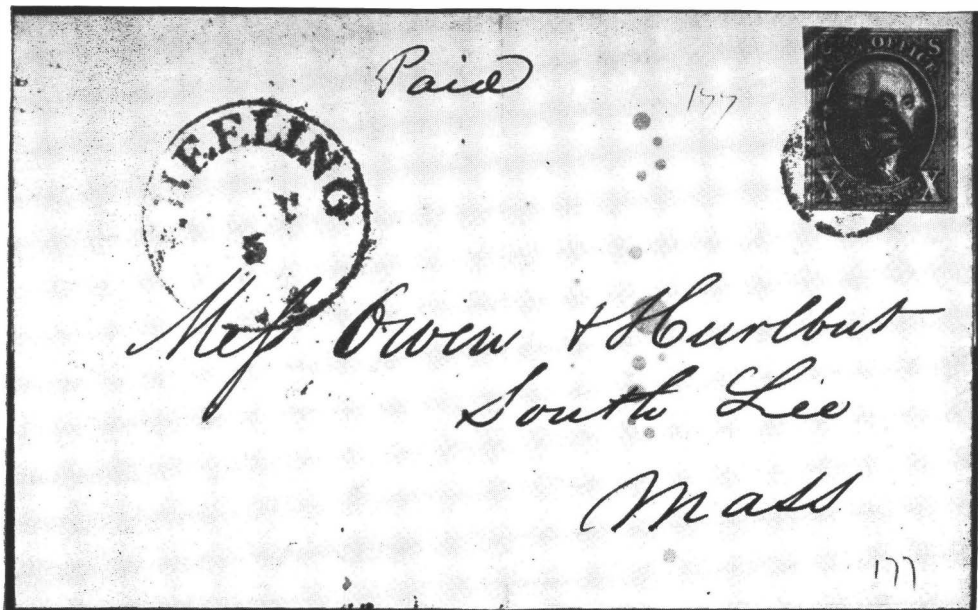 Paid
177
POST OFFICE
X X
HEELING
5
Mess Owen & Hurlbut
South Lee
Mass
177